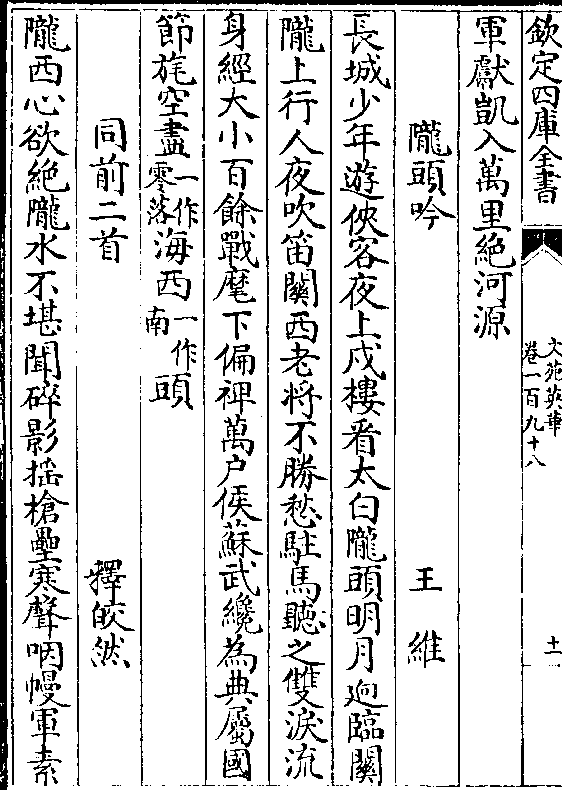 欽定四庫全書
文苑英華
卷一百九十八
十一
軍獻凱入萬里絶河源
隴頭吟
王維
長城少年遊俠客夜上戍樓看太白隴頭明月迥臨關
隴上行人夜吹笛關西老將不勝愁駐馬聽之雙淚流
身經大小百餘戰麾下偏裨萬户侯蘇武纔為典屬國
節旄空盡一作零落海西一作南頭
同前二首
釋皎然
隴西心欲絶隴水不堪聞碎影揺槍壘寒聲咽幔軍素